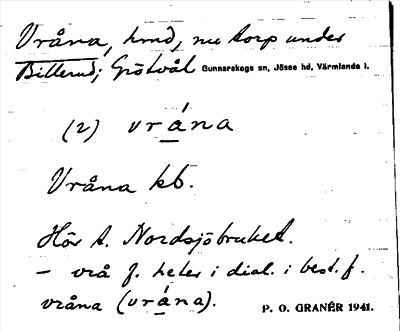 Vråna, hmd, nu torp under
Billerud; Grötvål Gunnarskogs sn, Jösse hd, Värmlands l.
(2) vrána
Vråna kb.
Hör t. Nordsjöbruket.
— vrå f. heter i dial. i best. f.
vråna (vrána).
P. O. GRANÉR 1941.